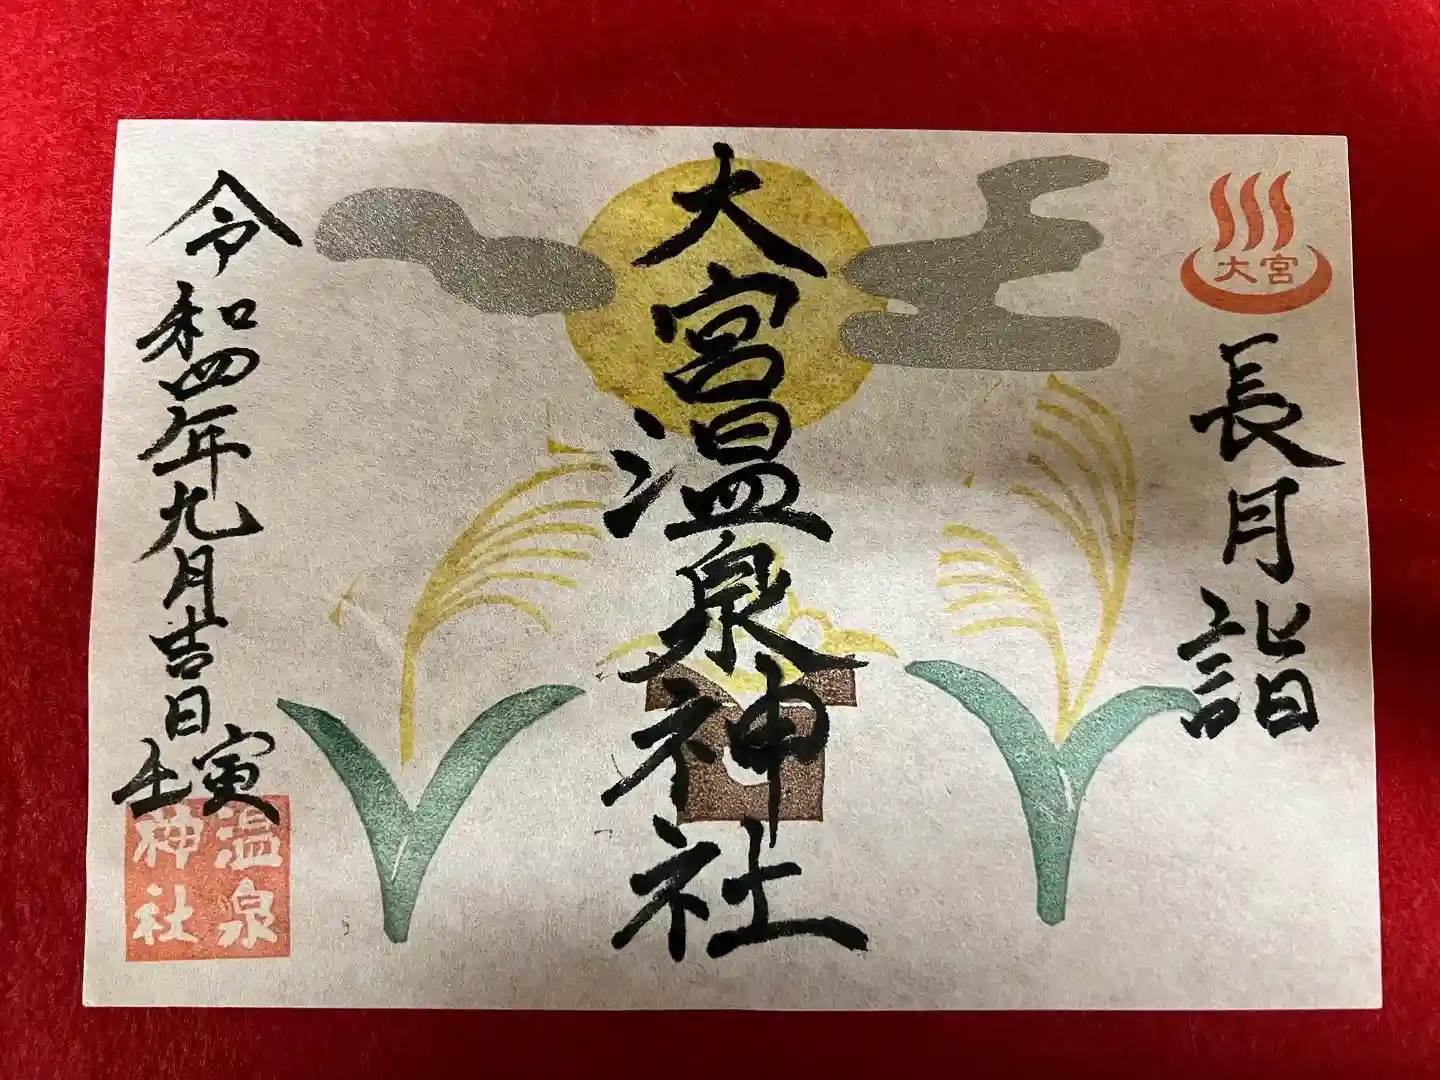 大宮
長月詣
大宮温泉神社
令和四年九月吉日
壬寅
温泉
神社